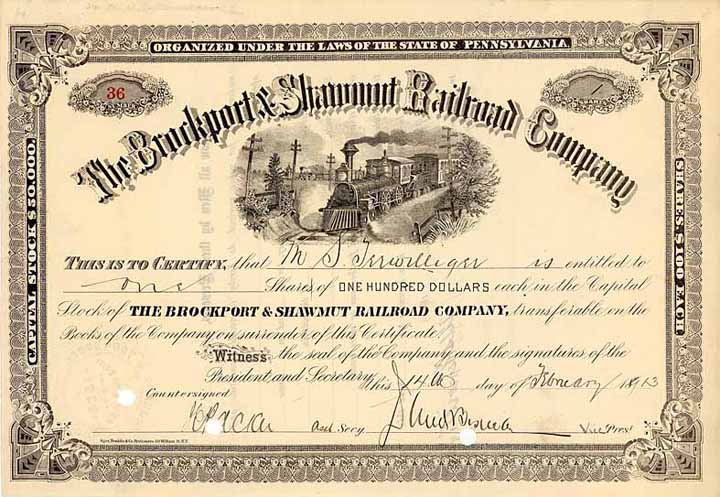 ORGANIZED UNDER THE LAWS OF THE STATE OF PENNSYLVANIA.
36
1
The Brockport & Shawmut Railroad Company
CAPITAL STOCK $50,000.
SHARES $100 EACH
THIS IS TO CERTIFY, that M S Terwilliger is entitled to
one Shares of ONE HUNDRED DOLLARS each in the Capital
Stock of THE BROCKPORT & SHAWMUT RAILROAD COMPANY, transferable on the
Books of the Company on surrender of this Certificate.
Witness the seal of the Company and the signatures of the
President and Secretary this 14th day of February 1913
Countersigned
Asst Secy
Vice Prest